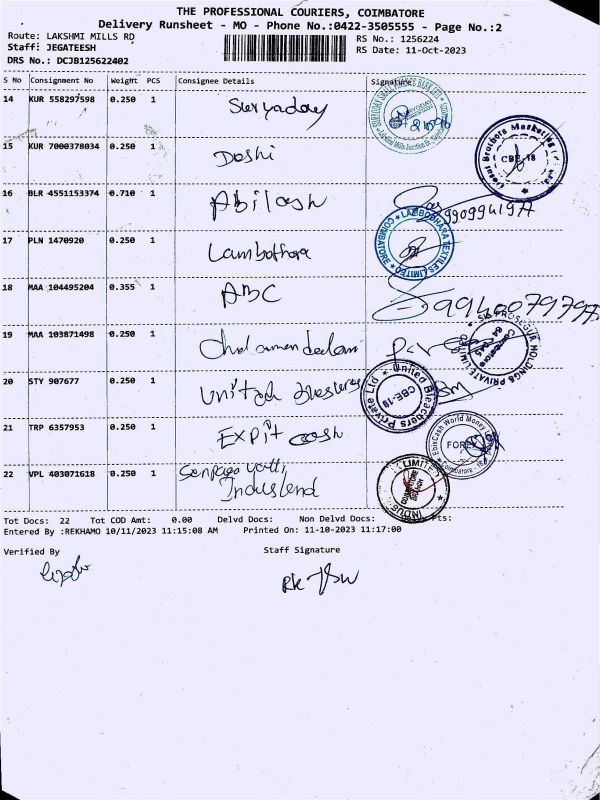 THE PROFESSIONAL COURIERS, COIMBATORE
Delivery Runsheet - MO - Phone No.:0422-3505555 - Page No.:2
Route: LAKSHMI MILLS RD
RS No.: 1256224
Staff: JEGATEESH
RS Date: 11-Oct-2023
DRS No.: DCJB125622402
S No Consignment No Weight PCS Consignee Details Signature
14 KUR 558297598 0.250 1 Suryaday
15 KUR 7000378034 0.250 1 Doshi
CBE-18
16 BLR 4551153374 0.710 1 Abilash
9909941977
17 PLN 1470920 0.250 1 Lambothara
LAMBODHARA TEXTILES LIMITED COIMBATORE
18 MAA 104495204 0.355 1 ABC 9940079797
19 MAA 103871498 0.250 1
HOLDINGS PRIVATE LIMITED
20 STY 907677 0.250 1 United
United Bleachers Private Ltd CBE-19
21 TRP 6357953 0.250 1 Expit cash
EbixCash World Money FOREX Coimbatore
22 VPL 403071618 0.250 1
Induslend
LIMITED COIMBATORE BRANCH
Tot Docs: 22 Tot COD Amt: 0.00 Delvd Docs: Non Delvd Docs: Pts:
Entered By :REKHAMO 10/11/2023 11:15:08 AM Printed On: 11-10-2023 11:17:00
Verified By Staff Signature